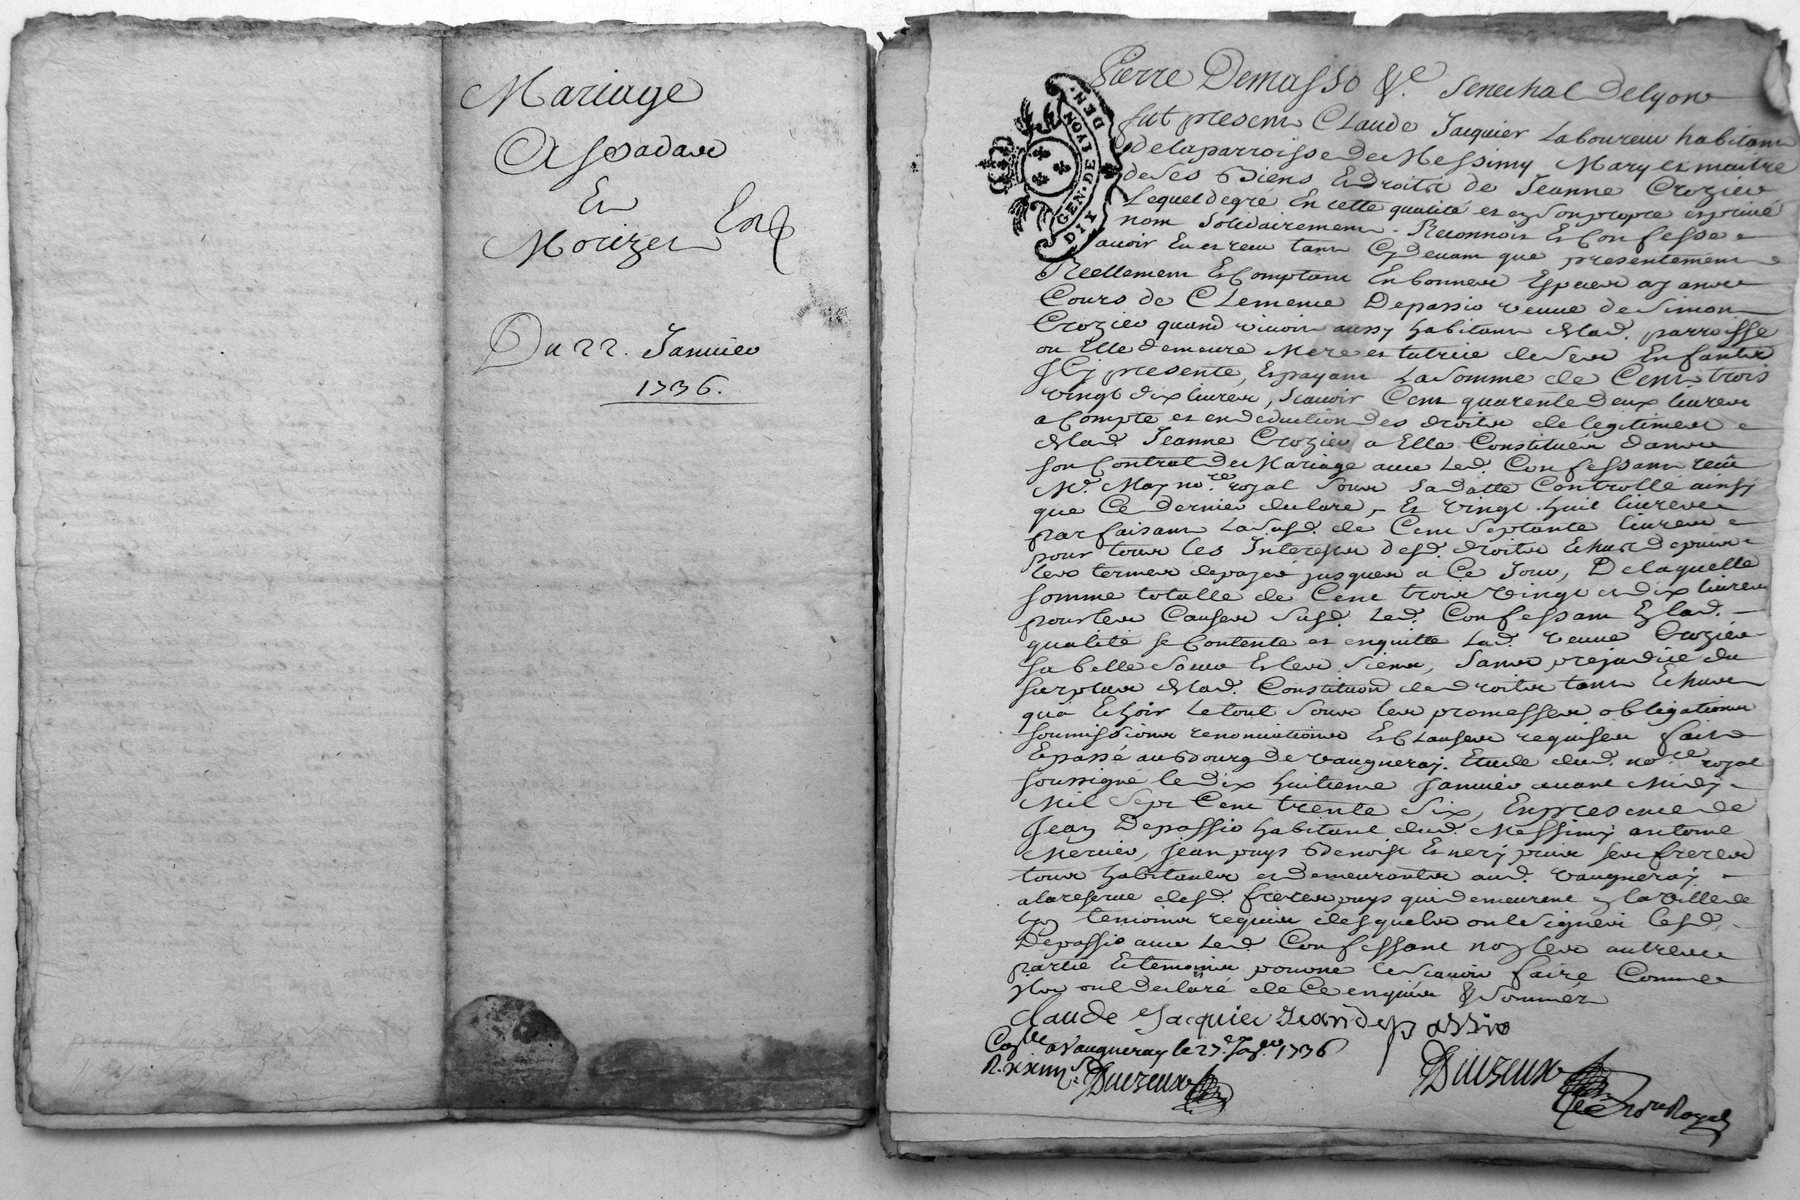 Mariage
Et
Du 22. Janvier
1736.
DIX DEN.
GEN. DE LYON
Pierre Demasso &c Senechal Delyon
fut present Claude Jacquier Laboureur habitant
delaparroisse de Messimy Mary et maitre
de ses Biens Et droits de Jeanne Crozier
Lequel degré En cette qualité et en son propre et privé
nom solidairement Reconnoit Et Confesse
avoir Eu et receu tant Cydevant que presentement
Reellement Et Comptant En bonnes Especes ayants
Cours de Clemence Depassio veuve de Simon
Crozier quand vivoit aussy habitant de lad. parroisse
ou Elle demeure Mere et tutrice de ses Enfants
Icy presente, Et payant La somme de Cent trois
vingt dix livres, scavoir Cent quarente deux livres
a Compte et en deduction des droits de legitimes
de lad. Jeanne Crozier a Elle Constitués dans
son Contrat de Mariage avec Led. Confessant receu
Me. May no.re royal sous sa datte Controllé ainsy
que Ce dernier declare, Et vingt huit livres
parfaisant La susd. de Cent septante livres
pour tous les Interests desd. droits Echus depuis
les termes de payés jusques a Ce Jour, De laquelle
somme totalle de Cent trois vingt et dix livres
pour les Causes susd. Led. Confessant En lad.
qualité se Contente et en quitte Lad. veuve Crozier
sa belle soeur Et les siens, sans prejudice du
surplus de lad. Constitu͞on de droits tant Echus
qu'a Echoir Le tout sous les promesses obligations
soumissions renonciations Et Clauses requises fait
Et passé au Bourg de vaugneray. Etude dud. no.re royal
soussigné le dix huitieme janvier avant Midy
Mil Sept Cent trente Six, En presence de
Jean Depassio habitant dud. Messimy antoine
Mercier, jean puys Benoist Et nery puis ses freres
tous habitants et demeurants aud. vaugneray
a la reserve desd. freres puys qui demeurent en la ville de
temoins requis desquels ont signés lesd.
Depassio avec Led. Confessant non les autres
partie Et temoins pour ne le scavoir faire Comme
Ils ont declaré de Ce enquis & sommés
claude Jacquier Jean depassio
Con.lle a Vaugneray le 27.e Jan.er 1736